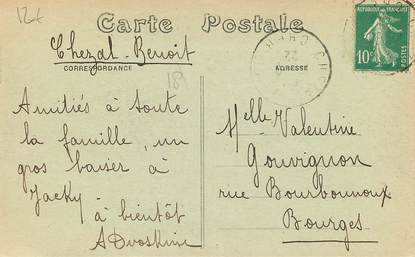 12€
Carte Postale
Chezal-Benoit
CORRESPONDANCE
ADRESSE
Amitiés à toute
la famille, un
gros baiser à
Jacky
à bientôt
Melle Valentine
Gouvignon
rue Bourbonnoux
Bourges
22
CHER
REPUBLIQUE FRANÇAISE
10c